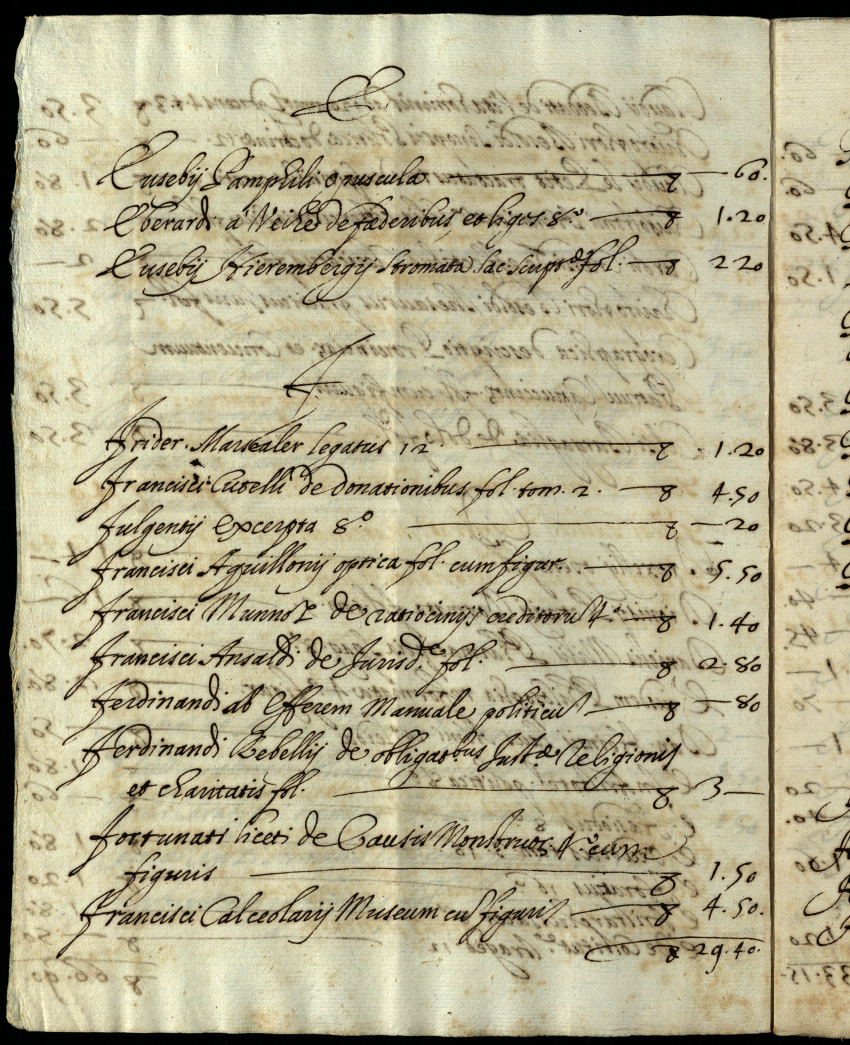 E
Eusebij Pamphili opuscula — 8 — 60.
Eberardi a Weihe de fæderibus et ligis 8.° — 8 1.20
Eusebij Hierembergij stromata sac. script.æ fol. — 8 2 20
F
Frider. Marsealer legatus 12 — 8 1.20
Francisci Cutelli de donationibus fol. tom. 2. — 8 4.50
Fulgentij excerpta 8.° — 8 — 20
Francisci Aguillonij optica fol. cum figur. — 8 . 5.50
Francisci Munnoz de ratiocinijs creditoru 4.° — 8 . 1.40
Francisci Ansaldi de Jurisd.e fol. — 8 2.80
Ferdinandi ab Efferem Manuale politicu — 8 — 80
Ferdinandi Rebellij de obligat.bus Just.æ Religionis
et charitatis fol. — 8 3 —
Fortunati liceti de Causis Monstruor. 4.° cum
figuris — 8 1.50
Francisci Calceolarij Museum cu figuris — 8 4.50.
8 29.40.